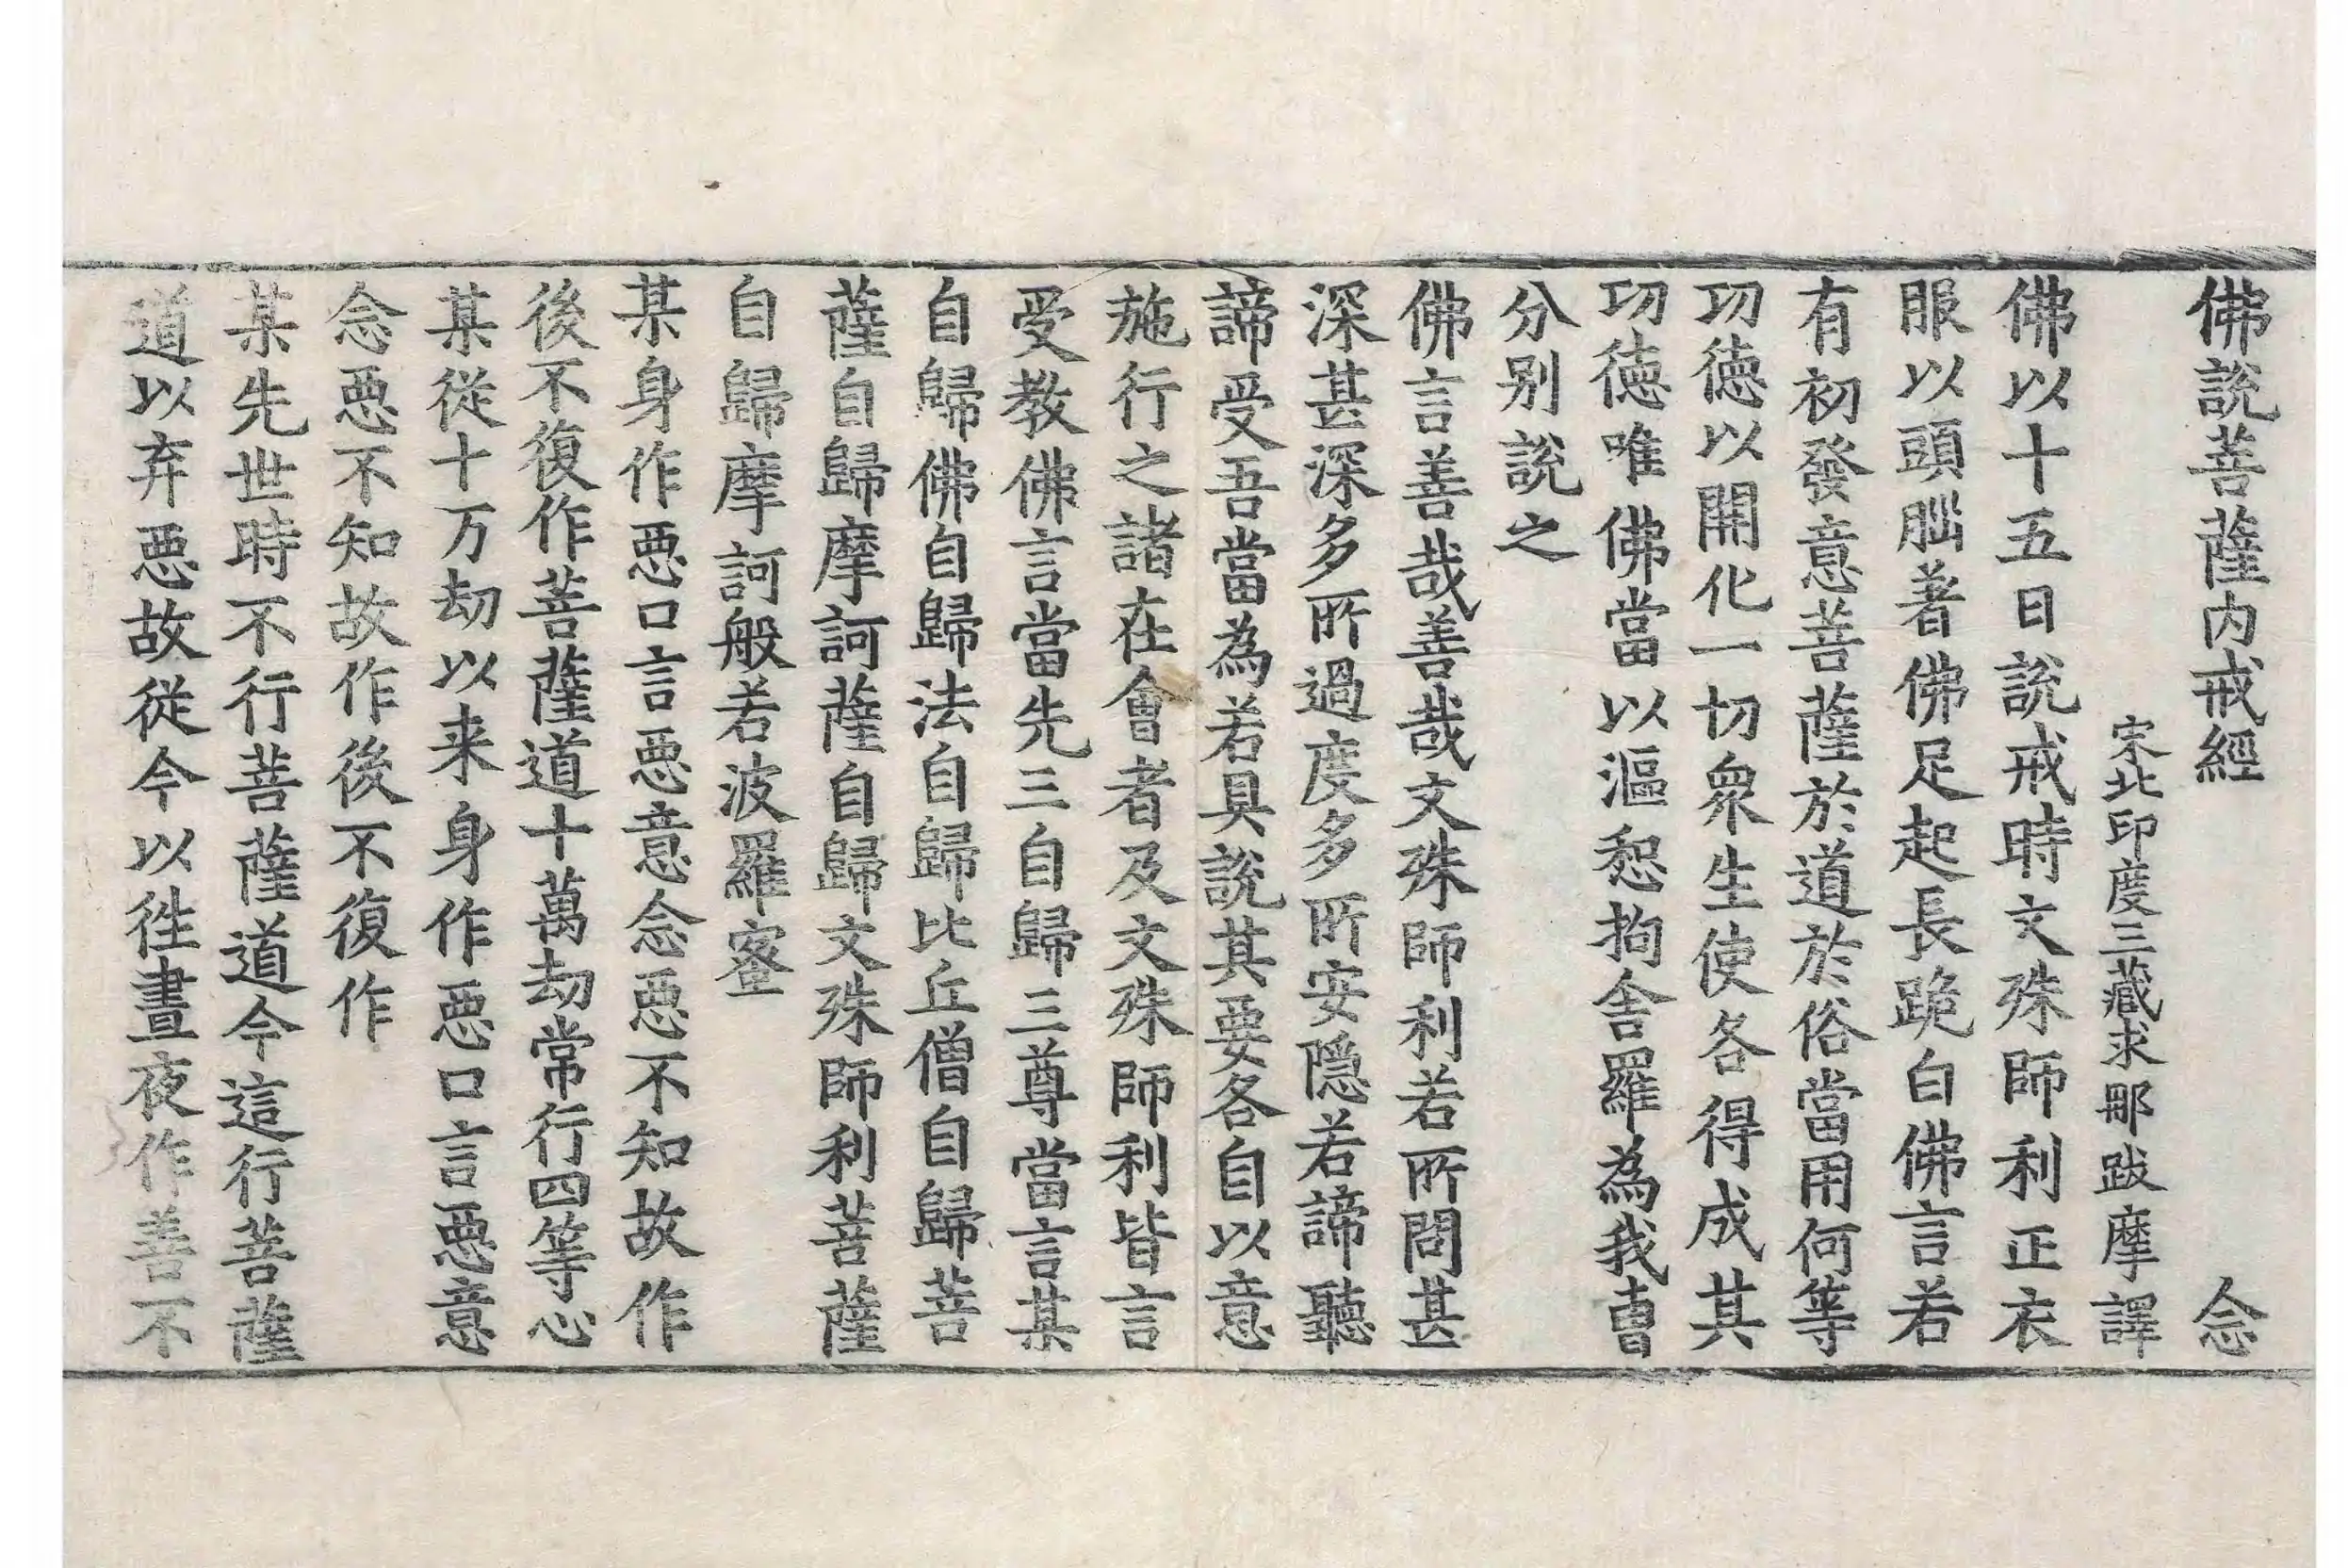 佛說菩薩内戒經 念
宋北印度三藏求那跋摩譯
佛以十五日說戒時文殊師利正衣
服以頭腦著佛足起長跪白佛言若
有初發意菩薩於道於俗當用何等
功德以開化一切衆生使各得成其
功德唯佛當以漚惒拘舍羅為我曹
分别說之
佛言善哉善哉文殊師利若所問甚
深甚深多所過度多所安隱若諦聽
諦受吾當為若具說其要各自以意
施行之諸在會者及文殊師利皆言
受教佛言當先三自歸三尊當言某
自歸佛自歸法自歸比丘僧自歸菩
薩自歸摩訶薩自歸文殊師利菩薩
自歸摩訶般若波羅蜜
某身作惡口言惡意念惡不知故作
後不復作菩薩道十萬劫常行四等心
某從十万劫以来身作惡口言惡意
念惡不知故作後不復作
某先世時不行菩薩道今這行菩薩
道以弃惡故從今以徃晝夜作善不